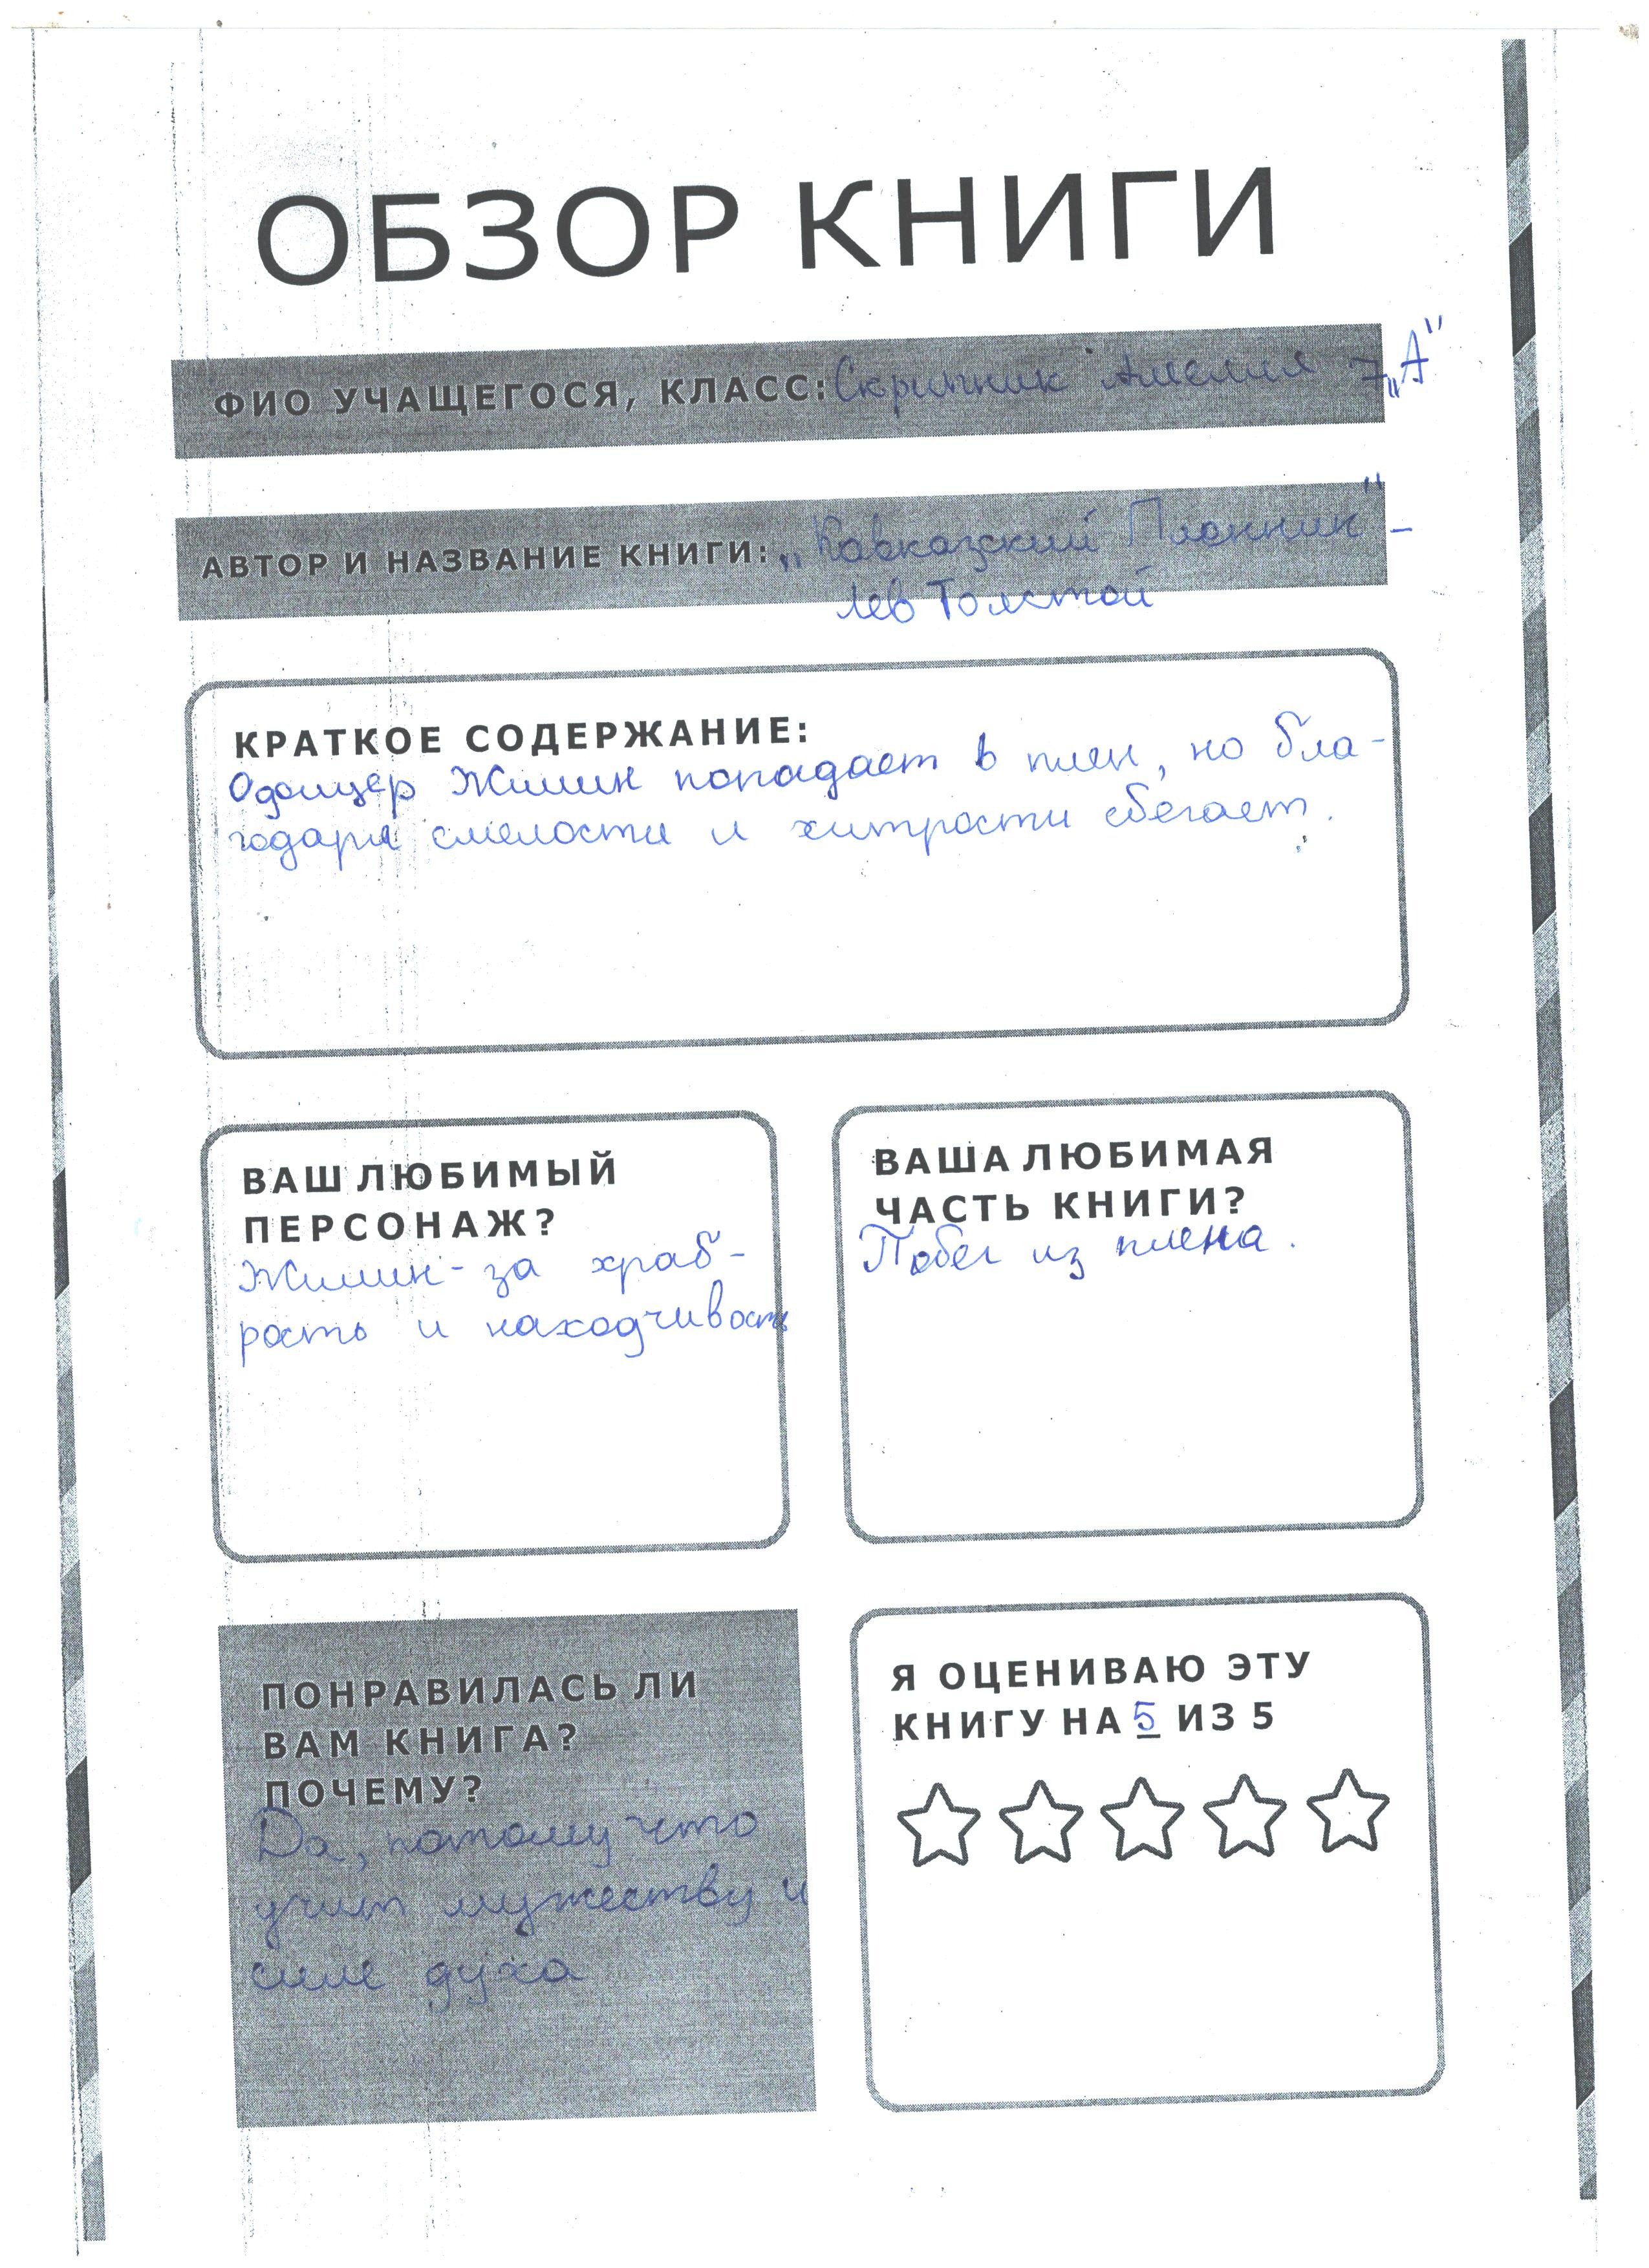 ОБЗОР КНИГИ
ФИО УЧАЩЕГОСЯ, КЛАСС: Скрипник Амелия 7 „А"
АВТОР И НАЗВАНИЕ КНИГИ: „Кавказский Пленник" –
Лев Толстой
КРАТКОЕ СОДЕРЖАНИЕ:
Офицер Жилин попадает в плен, но бла-
годаря смелости и хитрости сбегает.
ВАШ ЛЮБИМЫЙ
ПЕРСОНАЖ?
Жилин - за храб-
рость и находчивость
ВАША ЛЮБИМАЯ
ЧАСТЬ КНИГИ?
Побег из плена.
ПОНРАВИЛАСЬ ЛИ
ВАМ КНИГА?
ПОЧЕМУ?
Да, потому что
учит мужеству и
силе духа
Я ОЦЕНИВАЮ ЭТУ
КНИГУ НА 5 ИЗ 5